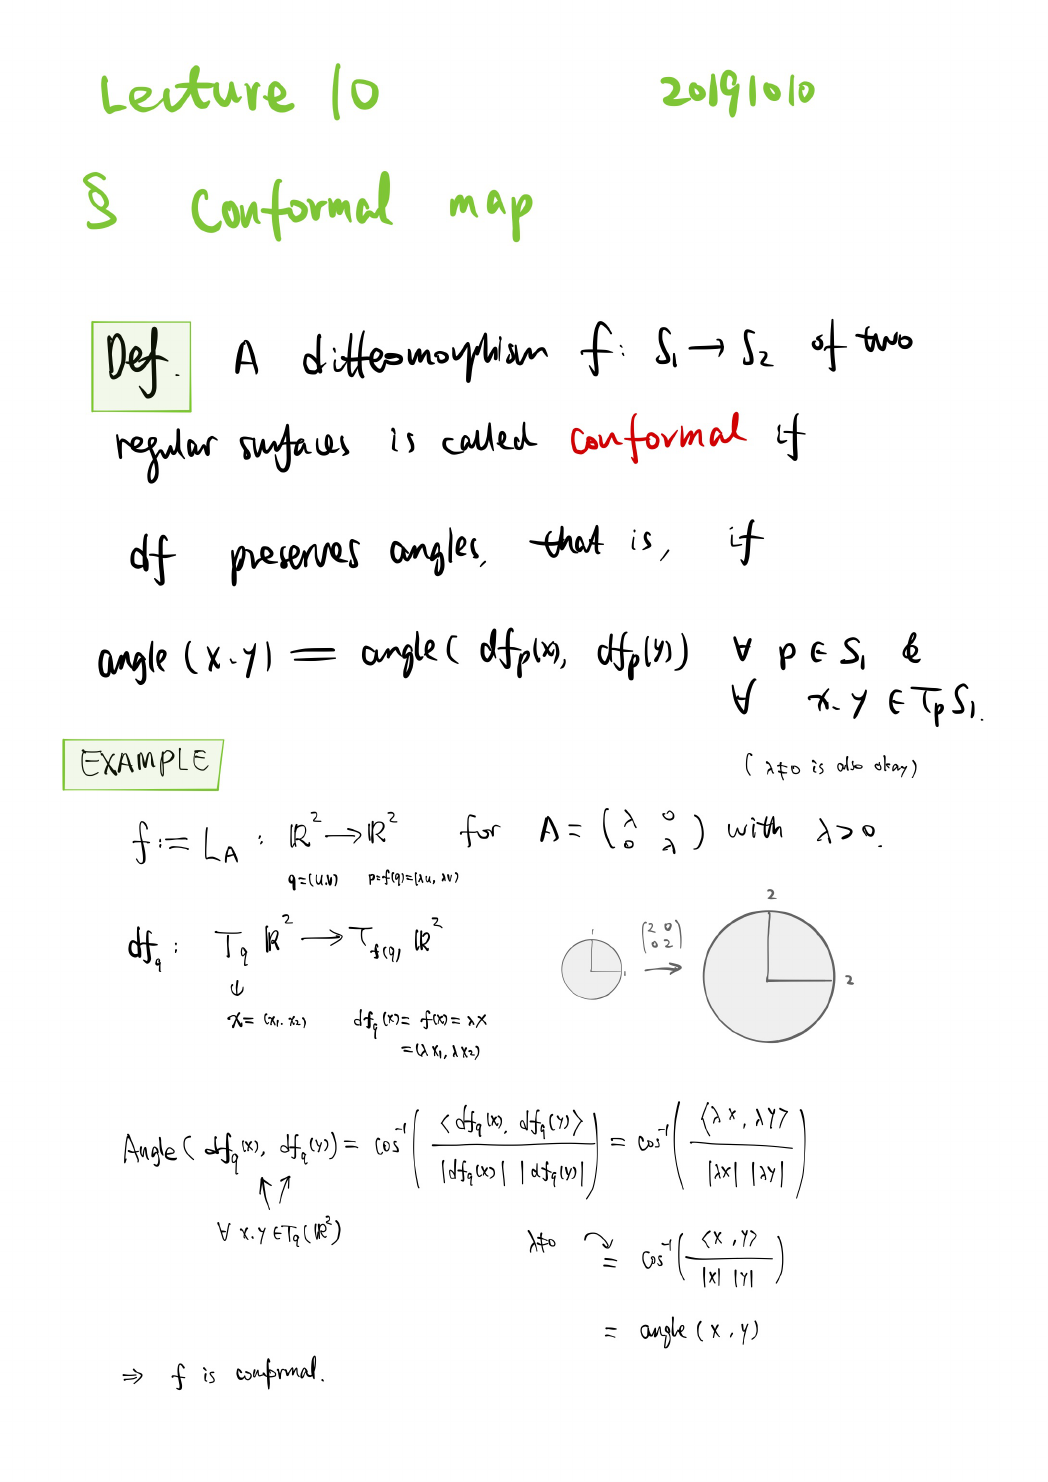 Lecture 10 20191010
§ Conformal map
Def. A diffeomorphism f: S₁ → S₂ of two
regular surfaces is called conformal if
df preserves angles, that is, if
angle (x.y) = angle( dfp(x), dfp(y)) ∀ p ∈ S₁ &
∀ x.y ∈ TpS₁.
EXAMPLE
( λ≠0 is also okay)
f := L_A : ℝ² → ℝ² for A = (λ 0
0 λ) with λ>0.
q=(u.v) p=f(q)=(λu, λv)
df_q : T_q ℝ² → T_f(q) ℝ²
x= (x₁. x₂) df_q(x)= f(x)= λx
=(λx₁, λx₂)
1
1
(2 0
0 2)
→
2
2
Angle( df_q(x), df_q(y)) = cos⁻¹( <df_q(x), df_q(y)> / |df_q(x)| |df_q(y)| ) = cos⁻¹( <λx, λy> / |λx| |λy| )
∀ x.y ∈ T_q(ℝ²)
λ≠0 = cos⁻¹( <x, y> / |x| |y| )
= angle (x, y)
⇒ f is conformal.